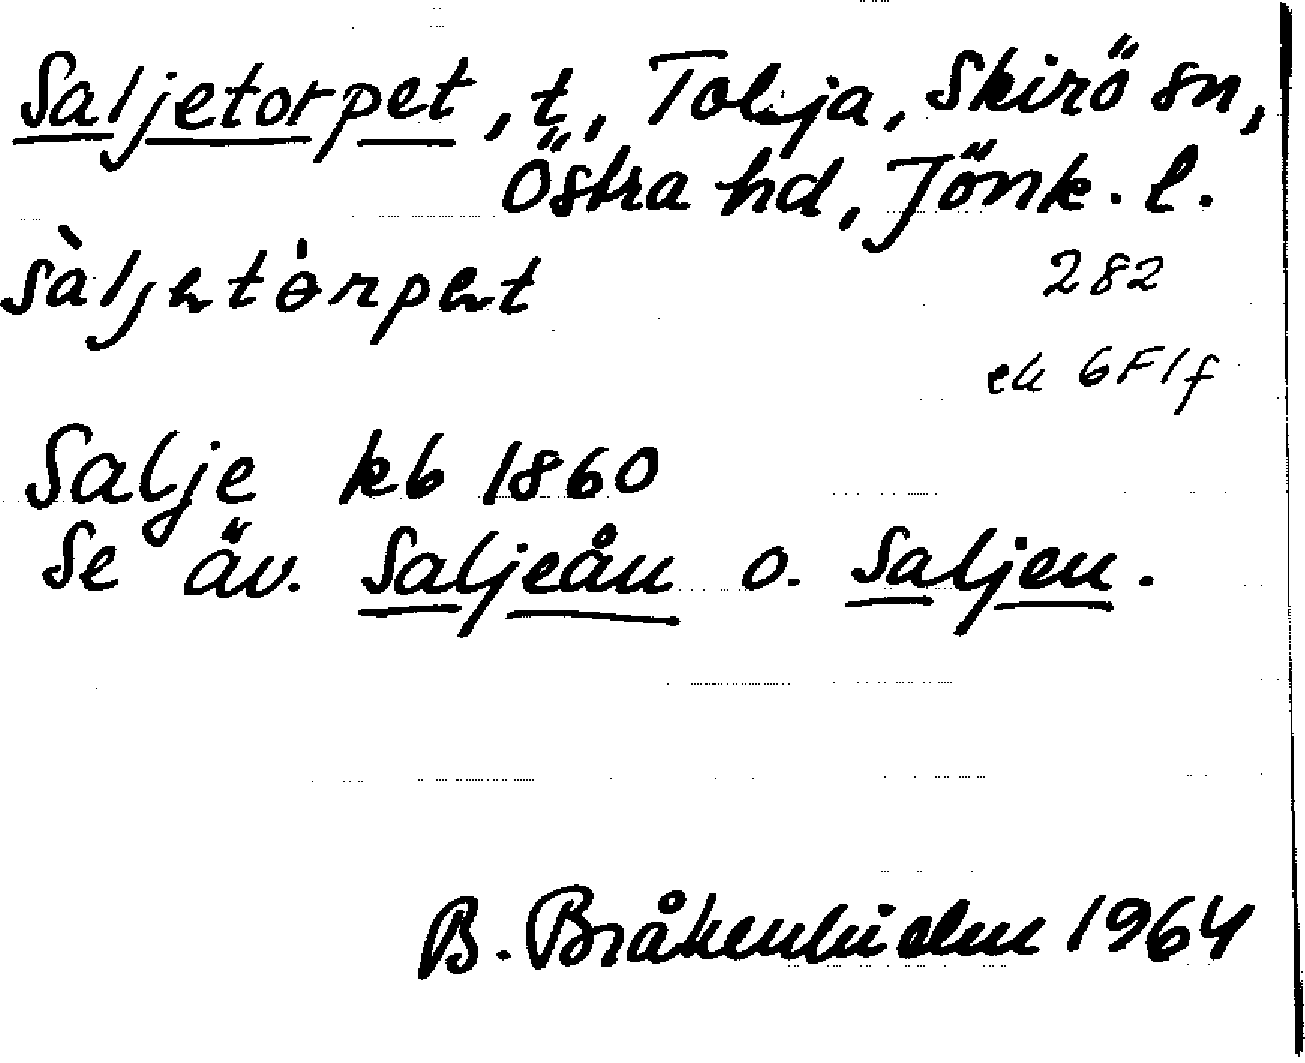 Saljetorpet, t, Tolja, Skirö sn,
Östra hd, Jönk. l.
282
ek 6F1f
Salje kb 1860
Se äv. Saljeån o. Saljen.
B. Bråkenhielm 1964